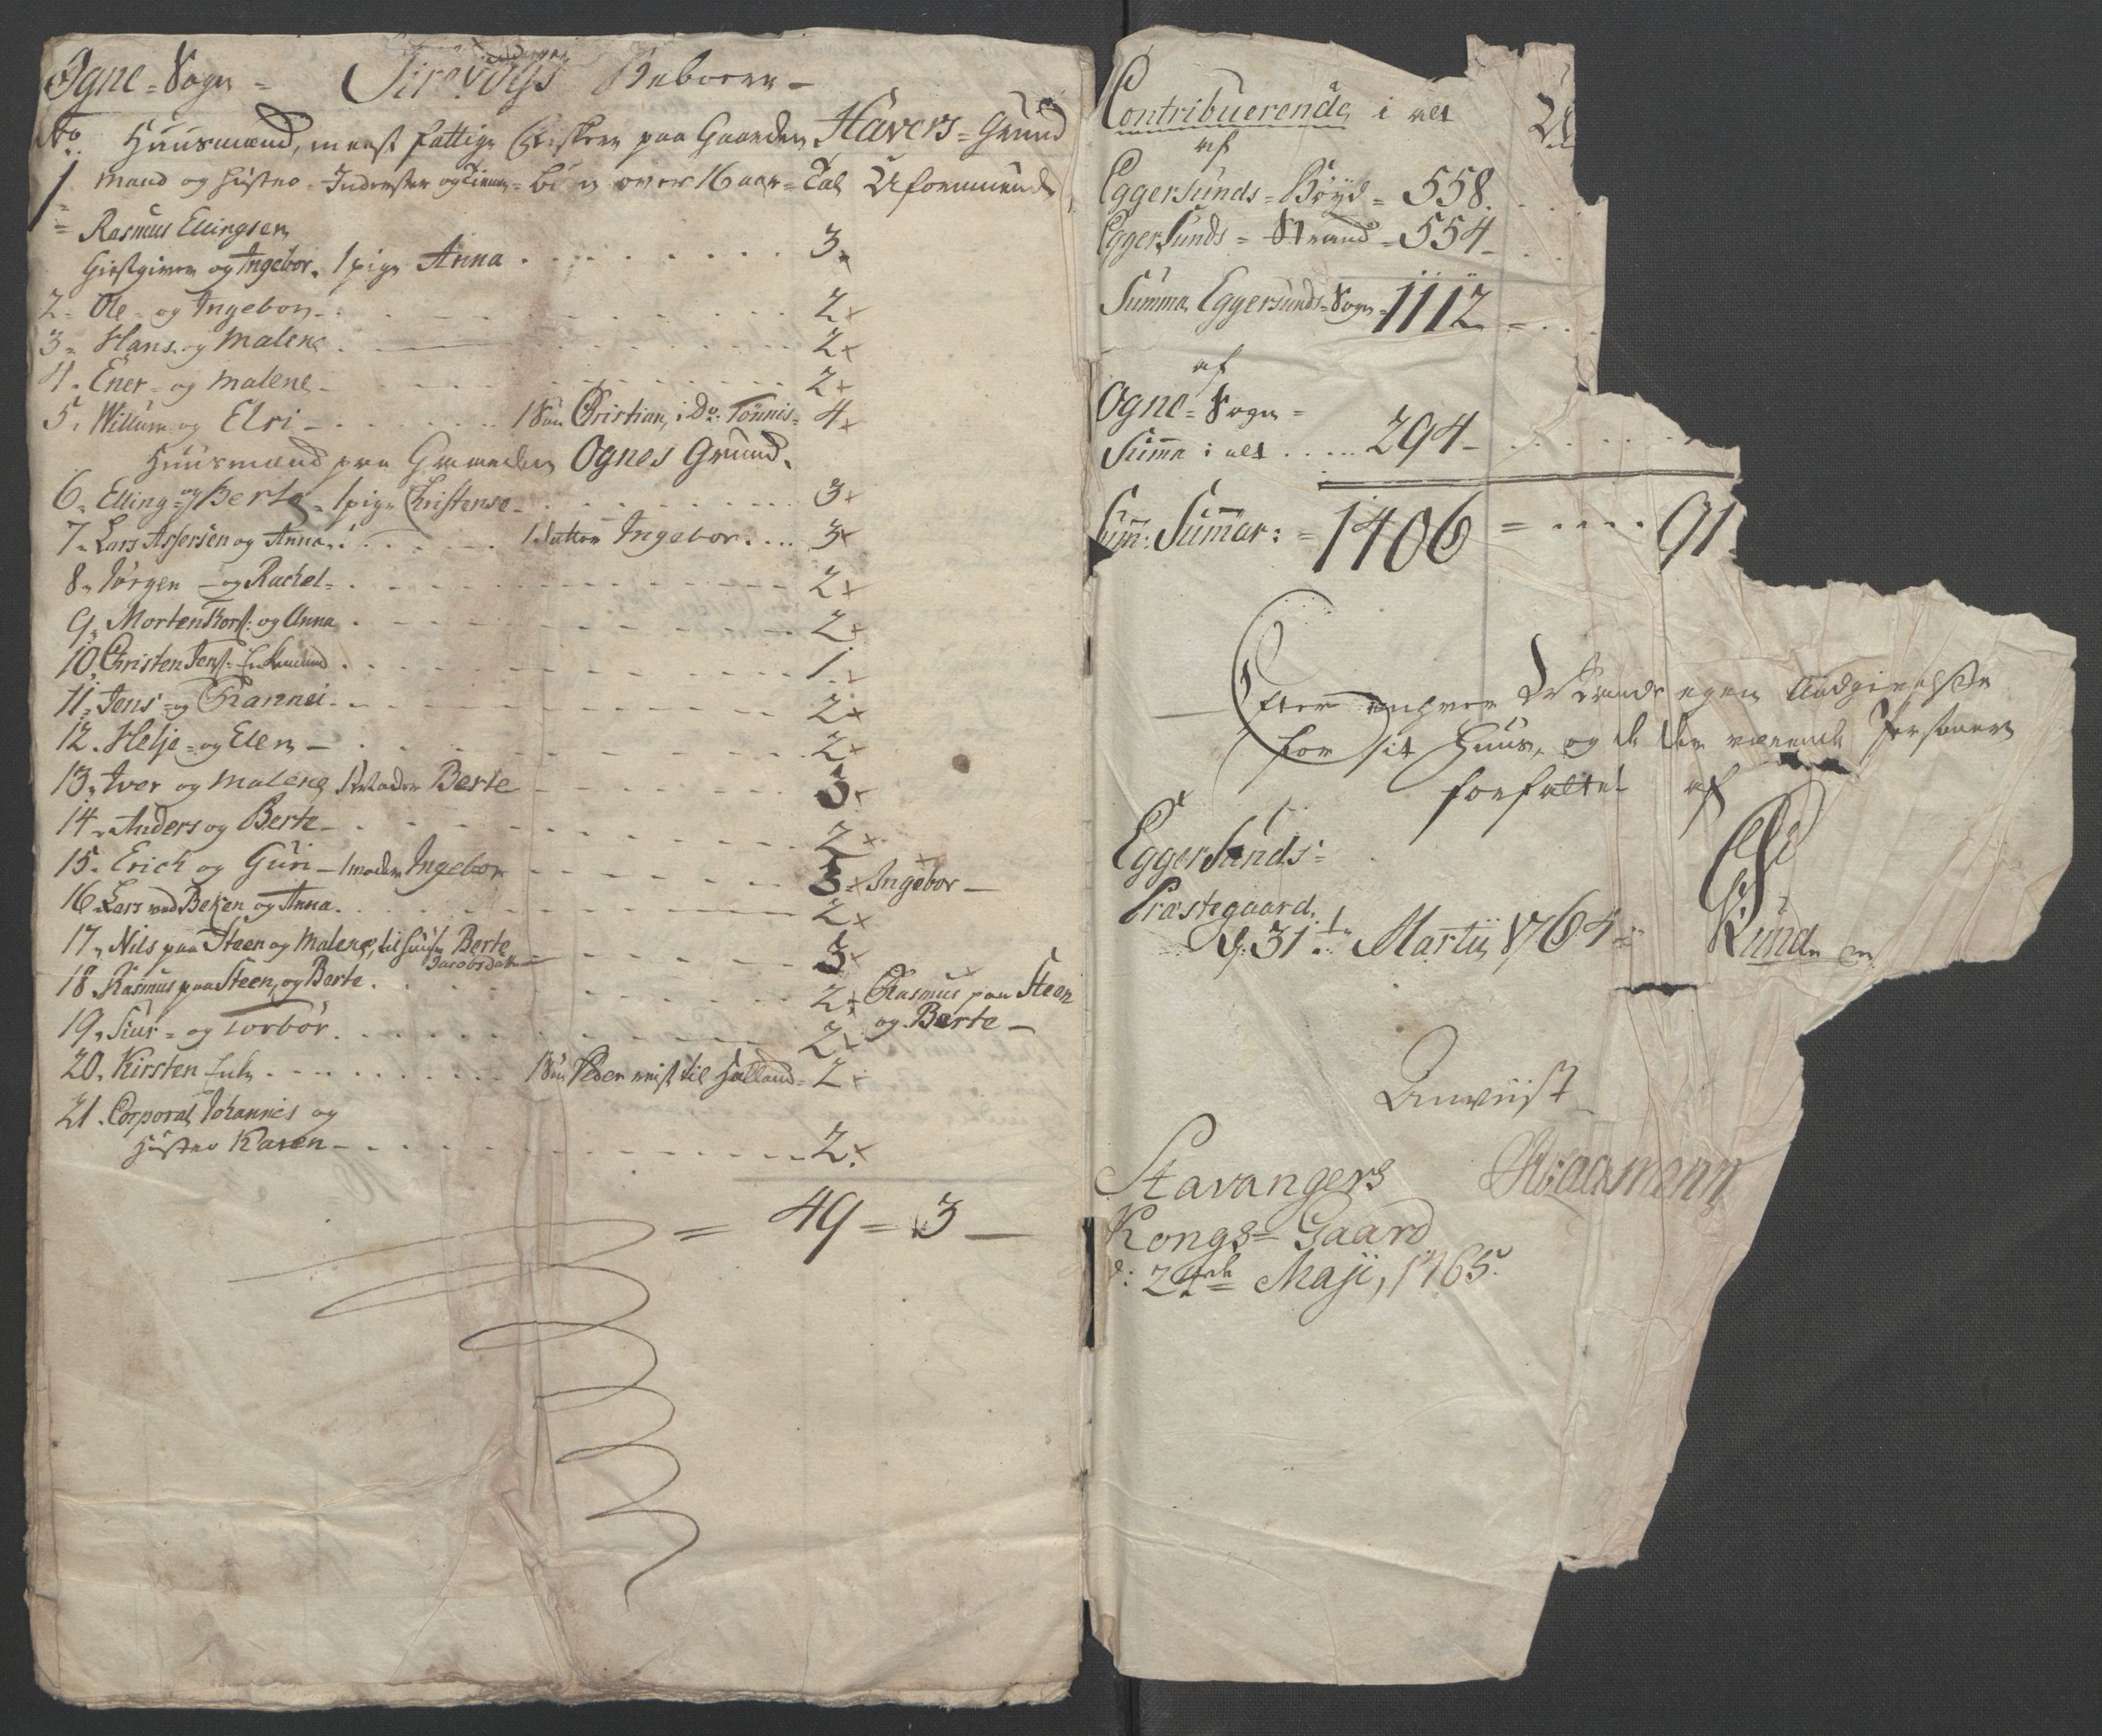 Ogne = Sogn = Sirevogs Beboere –
No. Huusmænd, meest fattige Fiskere paa Gaarden Havers = Grund
1 Mand og Hustro = Inderster og Tienere = Børn over 16 aar = Tal Uformuende
= Rasmus Ellingsen
Giestgiver og Ingebor. 1 pige Anna . . . . . . . . 3 x
2 = Ole = og Ingebor . . . . . . 2 x
3 = Hans og Malene . . . . . . 2 x
4. Ener = og Malene – . . . . . . 2 x
5. Willum og Elsi – . . . . . . 1 Søn Christian, i Do. Tönnis = 4 x
Huusmænd paa Gaarden Ognes Grund.
6. Elling = og Berte = 1 pige Christense – . . . . . . 3 x
7 = Lars Assersen og Anna . . . . . 1 datter Ingebor . . . . 3 x
8 = Jörgen – og Rachel = . . . . . . 2 x
9 = Morten Korss: og Anna . . . . . . 2 x
10, Christen Jenss: Enkemand . . . . . . 1. x
11 = Jens = og Rannei – . . . . . . 2 x
12. Helje = og Elen – . . . . . . 2 x
13 = Iver og Malene, Berte – . . . . . . 3 x
14 = Anders og Berte – . . . . . . 2 x
15. Erich og Guri – 1 moder Ingebor . . . . . . 3 = x Ingebor –
16. Lars ved Beken og Anna . . . . . . 2 x
17 = Nils paa Steen og Malene, til Huuse Berte
Jacobsdatter . . . . . . 3 x
18. Rasmus paa Steen, og Berte . . . . . . 2 x Rasmus paa Steen
og Berte –
19 = Siur = og Torbor . . . . . . 2 x
20. Kirsten Enke . . . . . . 1 Søn Peder reist til Holland = 2 x
21. Corporal Johannes og
Hustro Karen – . . . . . . 2 x
= 49 = 3 –
Contribuerende i alt
af
Eggersunds = Böyd = 558 . . .
Eggersunds = Strand = 554 – . . .
Summa Eggersunds = Sogn = 1112 = . . .
af
Ogne = Sogn =
Summa i alt . . . . . 294 – . . . . . .
Sum: Summar: = 1406 = . . . . 91
Efter enhver egen Angivelse
for sit Huus, og de der værende Personer
forfattet af
Eggersunds =
Præstegaard,
d. 31te Martii 1764 =
Anviist
Stavangers
Kongs = Gaard
d: 24de Maji, 1765.